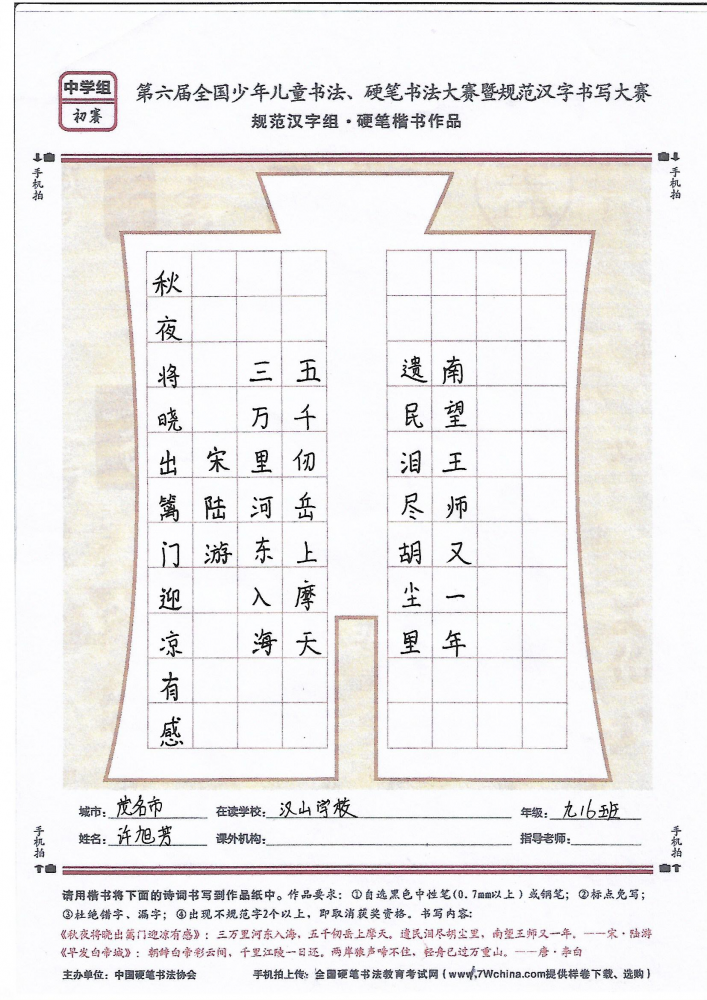 中学组
初赛
第六届全国少年儿童书法、硬笔书法大赛暨规范汉字书写大赛
规范汉字组·硬笔楷书作品
手机拍
手机拍
秋夜将晓出篱门迎凉有感
宋陆游
三万里河东入海
五千仞岳上摩天
遗民泪尽胡尘里
南望王师又一年
城市：茂名市 在读学校：汉山学校 年级：九16班
姓名：许旭芳 课外机构： 指导老师：
手机拍
手机拍
请用楷书将下面的诗词书写到作品纸中。作品要求：①自选黑色中性笔(0.7mm以上)或钢笔；②标点免写；
③杜绝错字、漏字；④出现不规范字2个以上，即取消获奖资格。书写内容：
《秋夜将晓出篱门迎凉有感》：三万里河东入海，五千仞岳上摩天。遗民泪尽胡尘里，南望王师又一年。——宋·陆游
《早发白帝城》：朝辞白帝彩云间，千里江陵一日还。两岸猿声啼不住，轻舟已过万重山。——唐·李白
主办单位：中国硬笔书法协会 手机拍上传：全国硬笔书法教育考试网（www.7Wchina.com提供样卷下载、选购）